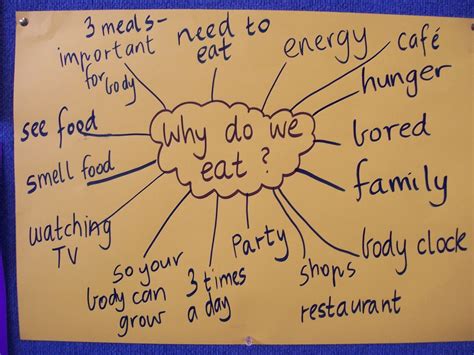 3 meals-
important
for body
need to
eat
energy
café
hunger
bored
family
body clock
shops
restaurant
Party
3 times
a day
so your
body can
grow
watching
TV
smell food
see food
Why do we
eat ?